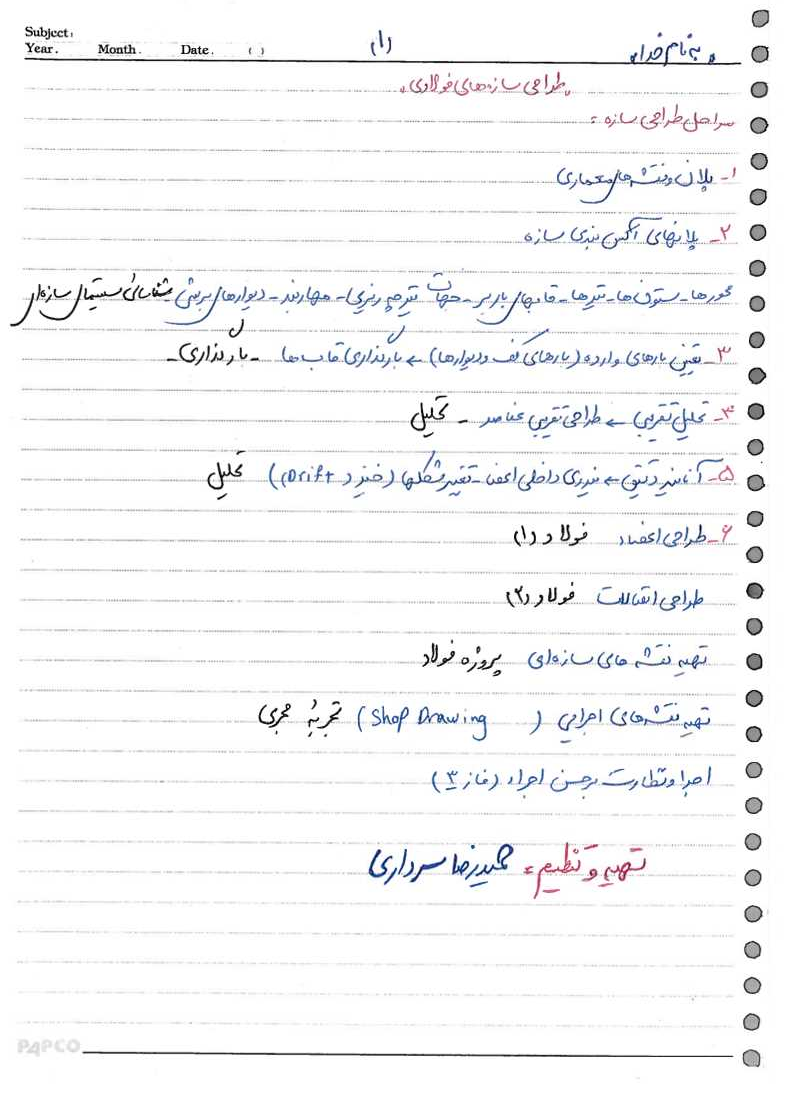 Subject:
Year. Month. Date. ( )
(۱)
« به نام خدا »
« طراحی سازه‌های فولادی »
مراحل طراحی سازه :
۱- پلان و نقشه های معماری
۲- پلانهای آکس بندی سازه
محورها - ستون ها - تیرها - قابهای باربر - جهات تیرچه ریزی - مهاربند - دیوارهای برشی - شناسائی سیستمهای سازه‌ای
۳- تعیین بارهای وارده (بارهای کف و دیوارها) ← بارگذاری قاب ها - بارگذاری -
۴- تحلیل تقریبی ← طراحی تقریبی عناصر - تحلیل
۵- آنالیز دقیق ← نیروی داخلی اعضا - تغییر شکلها (خیز و Drift) تحلیل
۶- طراحی اعضاء فولاد (۱)
طراحی اتصالات فولاد (۲)
تهیه نقشه های سازه‌ای پروژه فولاد
تهیه نقشه‌های اجرایی (Shop Drawing) تجربهٔ مجری
اجرا و نظارت بر حسن اجراء (فاز ۳)
تهیه و تنظیم : حمیدرضا سرداری
PAPCO